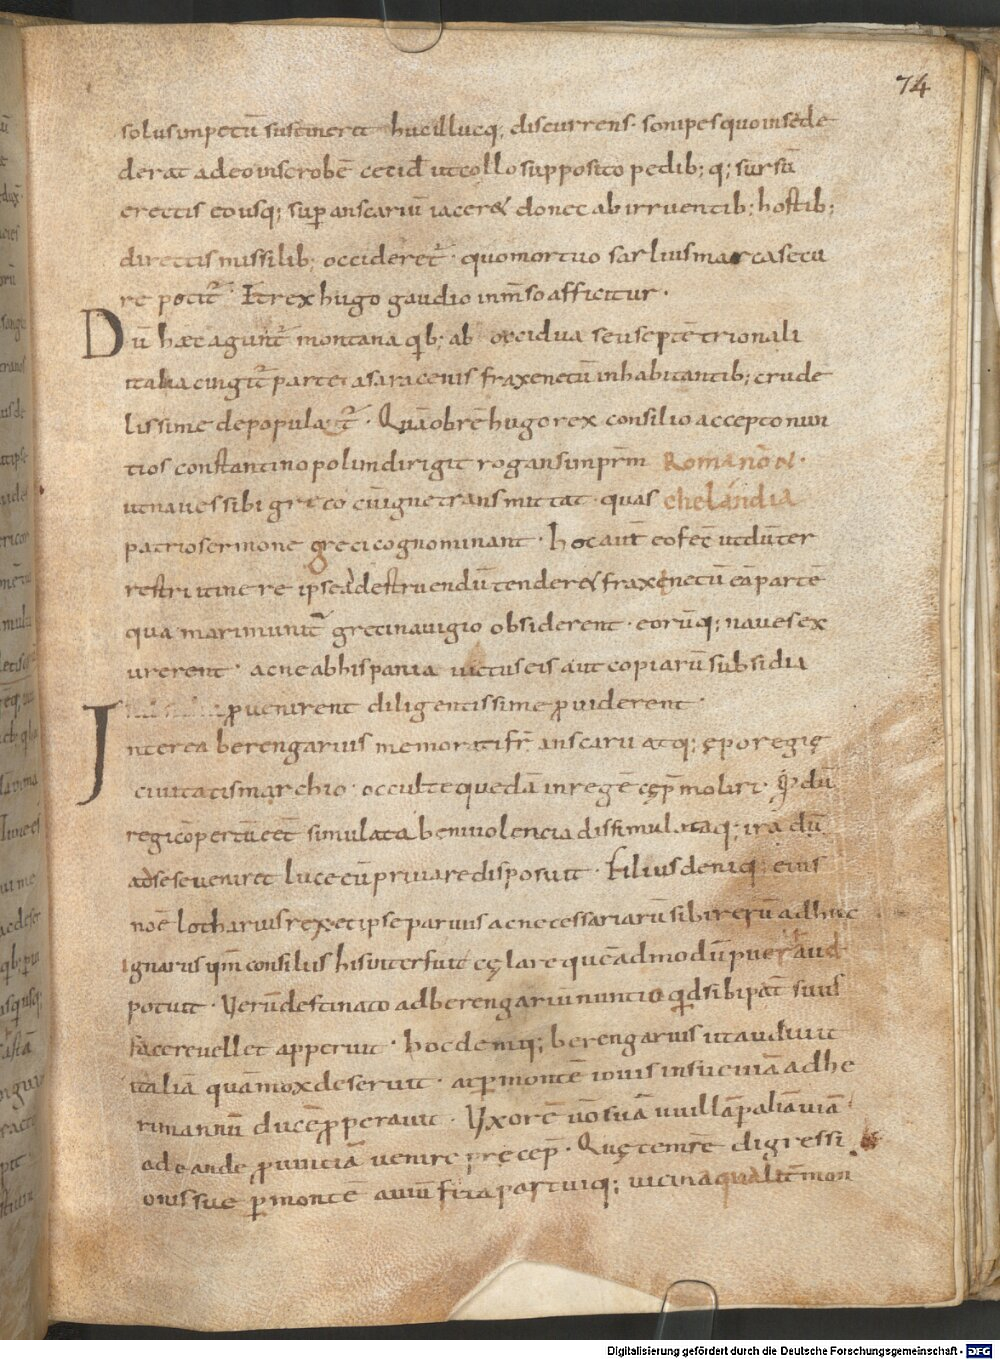 74
solus impetū sustineret huc illucq; discurrens · sonipes quo insede
derat adeo in scrobē cecid̄ ut collo supposito pedib; q; sursū
erectis eo usq; sup anscariū iacer& donec ab irruentib; hostib;
directis missilib; occideret̄ · quo mortuo sarlius marca secu
re potit̄ · Et rex hugo gaudio inm̄so afficitur ·
Dū hæc agunt̄ montana qib; ab occidua seu septētrionali
italia cingit̄ parte a saracenis fraxenetū inhabitantib; crude
lissime depopulat̄ · Quāobrē hugo rex consilio accepto nun
tios constantinopolim dirigit rogans imprm̄ Romanon ·
ut naues sibi greco cū igne transmittat · quas chelandia
patrio sermone greci cognominant · hoc aut̄ eo fec̄ ut dū ter
restri itinere ipse ad destruendū tender& fraxęnetū eā partē
qua mari munit̄ greci nauigio obsiderent · eorūq; naues ex
urerent · ac ne ab hispania uictus eis aut copiarū subsidia
puenirent diligentissime puiderent ·
Interea berengarius memorati fr̄ anscarii atq; ęporegię
ciuitatis marchio · occulte quedā in regē cęp̄ moliri · Qd dū
regi cōpertū eēt simulata beniuolencia dissimulataq; ira dū
ad se se ueniret luce eū priuare disposuit · Filius deniq; eius
noē lotharius rex et ipse paruus ac necessariarū sibi rerū adhuc
ignarus qm̄ consiliis his interfuit cęlare quēadmodū puer haud
potuit · Verū destinato ad berengariū nuntio qd sibi pat̄ suus
facere uellet apperuit · hoc deniq; berengarius ut audiuit
italiā quā mox deseruit · at p montē iouis in sueuiā ad he
rimannū ducē pperauit · Vxorē uō suā uuillā p aliā uiā
ad eande puinciā uenire pręcep̄ · Quę tem̄re digressi
onis sue p montē auiū fera partuiq; uicina qualit̄ mon
Digitalisierung gefördert durch die Deutsche Forschungsgemeinschaft - DFG